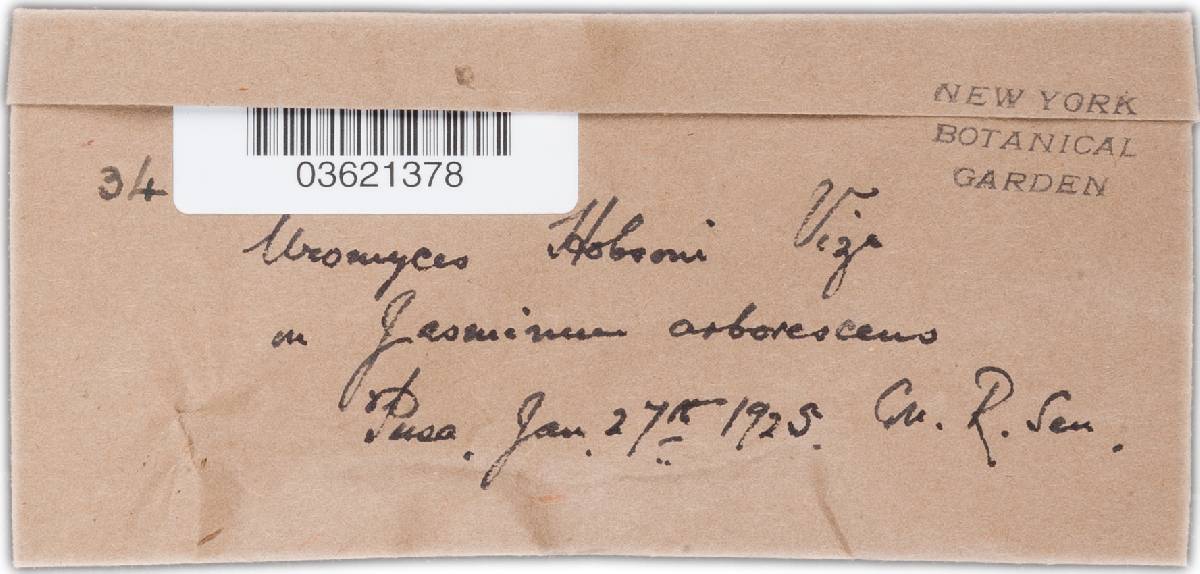 NEW YORK
BOTANICAL
GARDEN
03621378
34
Uromyces Hobsoni Vize
on Jasminum arborescens
Pusa. Jan. 27th 1925. Coll. R. Sen.